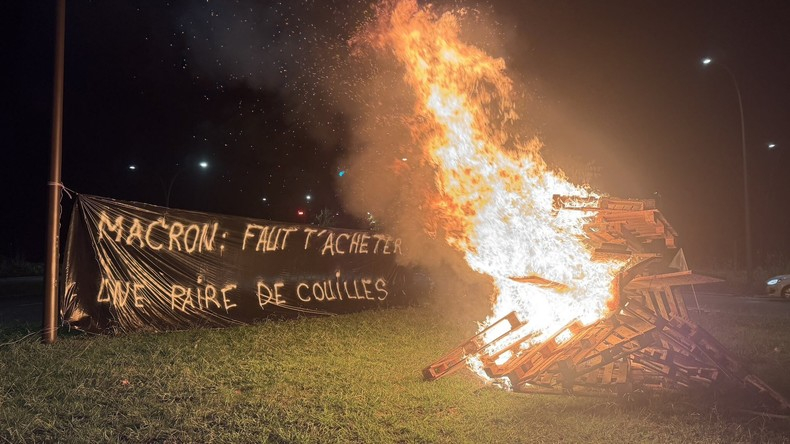 MACRON : FAUT T'ACHETER
UNE PAIRE DE COUILLES